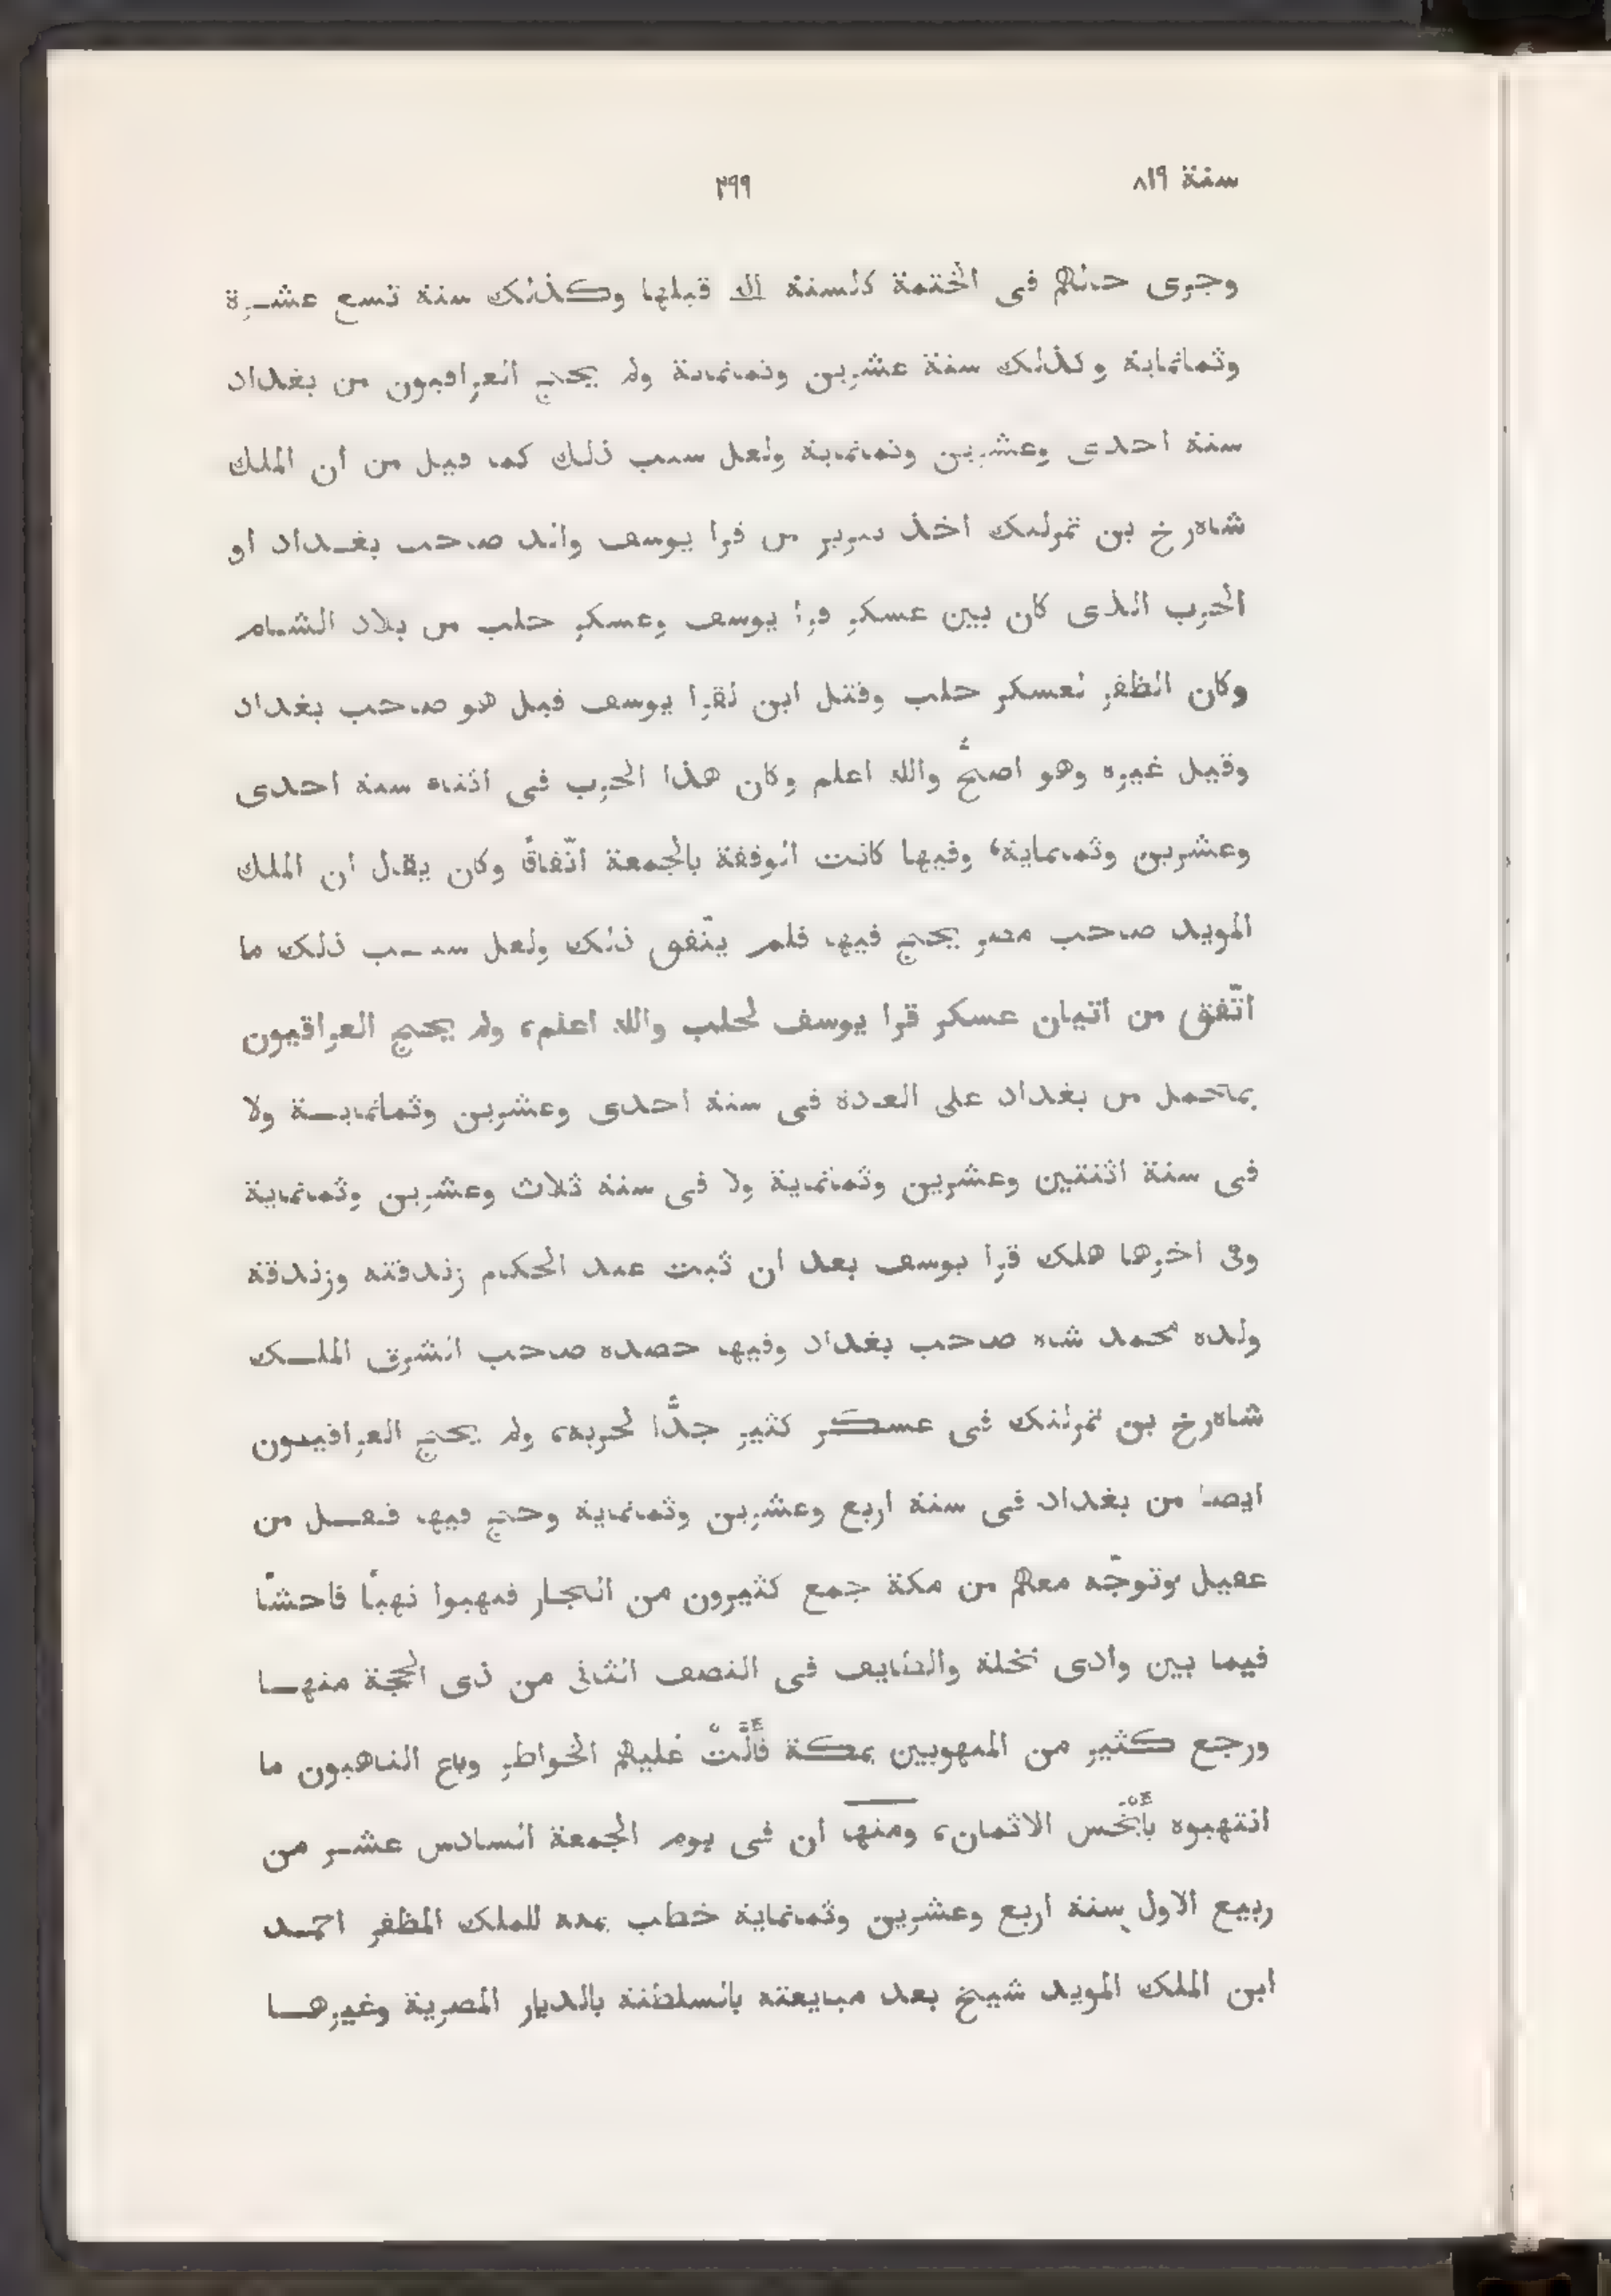 سنة ٨١٩
٢٩٩
وجرى حالهم فى الختمة كالسنة الله قبلها وكذلك سنة تسع عشرة
وثمانماية وكذلك سنة عشرين وثمانماية ولم يحج العراقيون من بغداد
سنة احدى وعشرين وثمانماية ولعل سبب ذلك كما قيل من ان الملك
شاه رخ بن تمرلنك اخذ تبريز من قرا يوسف وانه صاحب بغداد او
الحرب الذى كان بين عسكر قرا يوسف وعسكر حلب من بلاد الشام
وكان الظفر لعسكر حلب وقتل ابن لقرا يوسف قيل هو صاحب بغداد
وقيل غيره وهو اصحّ والله اعلم وكان هذا الحرب فى اثناء سنة احدى
وعشرين وثمانماية، وفيها كانت الوقفة بالجمعة اتّفاقً وكان يقال ان الملك
المويد صاحب مصر يحج فيها فلم يتّفق ذلك ولعل سبب ذلك ما
اتّفق من اتيان عسكر قرا يوسف لحلب والله اعلم، ولم يحج العراقيون
بمحمل من بغداد على العادة فى سنة احدى وعشرين وثمانماية ولا
فى سنة اثنتين وعشرين وثمانماية ولا فى سنة ثلاث وعشرين وثمانماية
وفى اخرها هلك قرا يوسف بعد ان ثبت عند الحكام زندقته وزندقة
ولده محمد شاه صاحب بغداد وفيها حصده صاحب الشرق الملك
شاه رخ بن تمرلنك فى عسكر كثير جدًّا لحربه، ولم يحج العراقيون
ايضا من بغداد فى سنة اربع وعشرين وثمانماية وحج فيها قفل من
عقيل وتوجّه معهم من مكة جمع كثيرون من التجار فنهبوا نهبًا فاحشًا
فيما بين وادى نخلة والطايف فى النصف الثانى من ذى الحجة منها
ورجع كثير من المنهوبين بمكة فَأَلَّتْ عليهم الخواطر وباع الناهبون ما
انتهبوه بأَبْخَس الاثمان، ومنها ان فى يوم الجمعة السادس عشر من
ربيع الاول سنة اربع وعشرين وثمانماية خطب بمكة للملك المظفر احمد
ابن الملك المويد شيخ بعد مبايعته بالسلطنة بالديار المصرية وغيرها